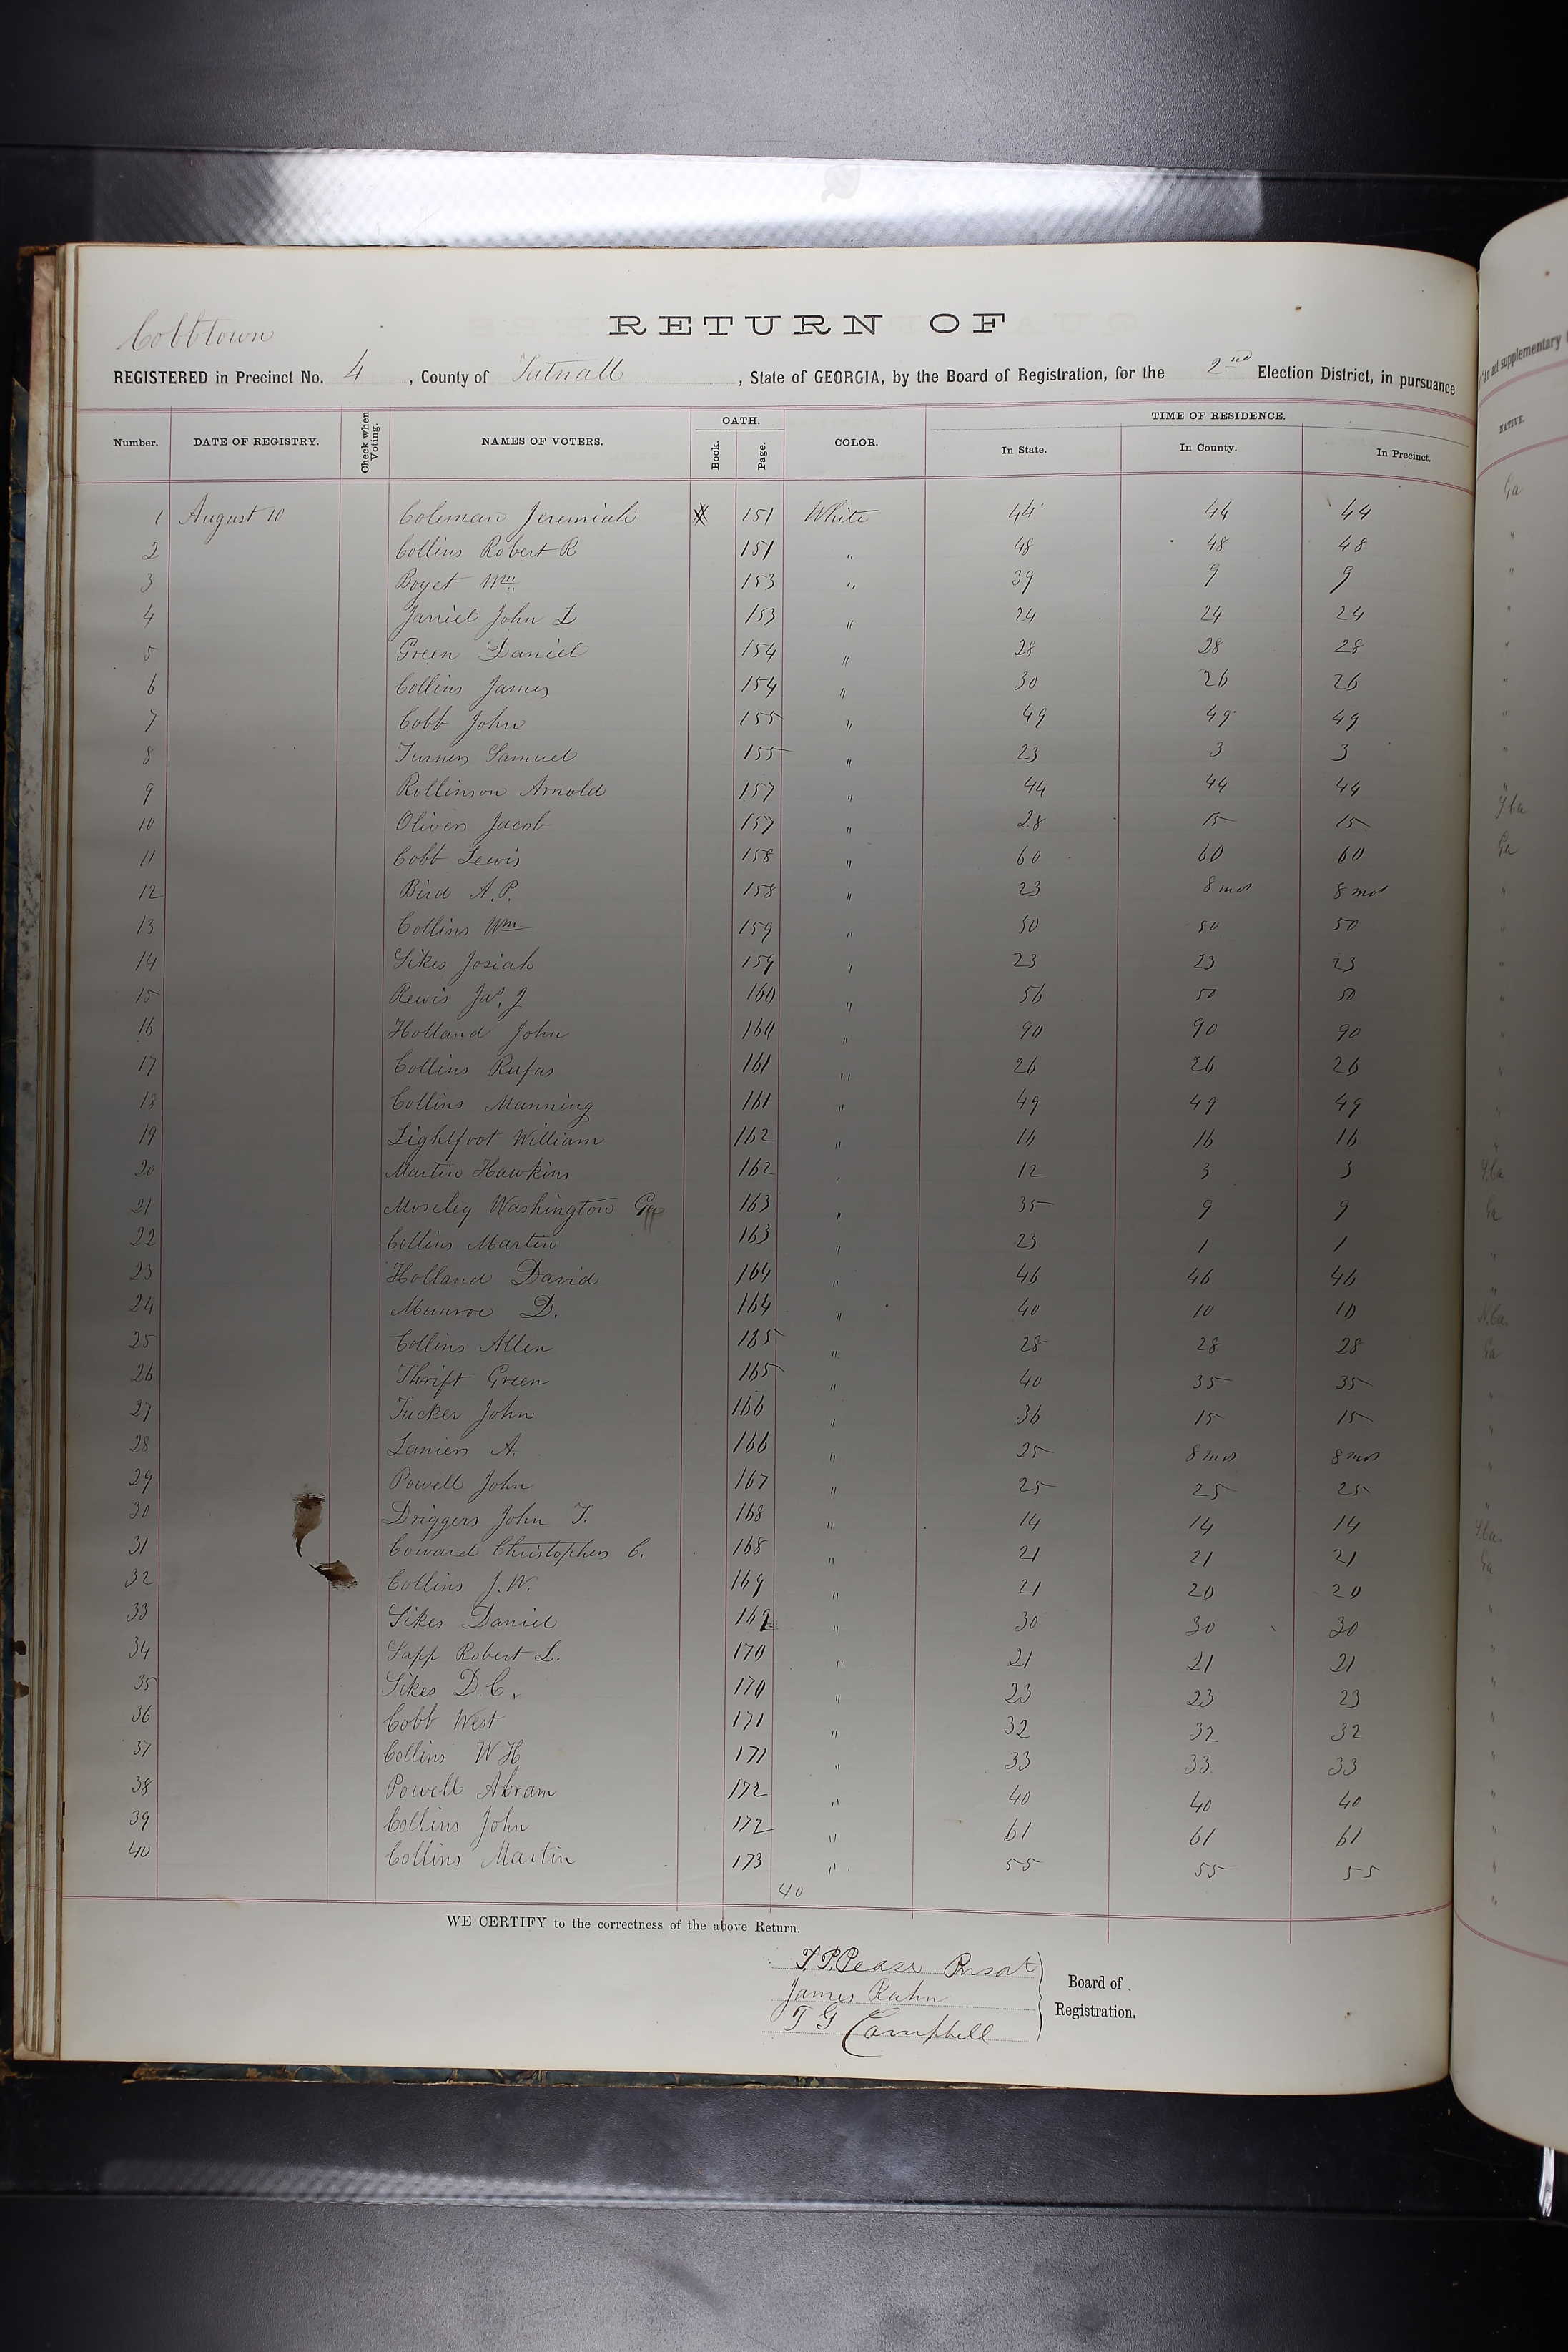 Cobbtown
RETURN OF
REGISTERED in Precinct No. 4, County of Tatnall, State of GEORGIA, by the Board of Registration, for the 2nd Election District, in pursuance
Number. DATE OF REGISTRY. Check when Voting. NAMES OF VOTERS. OATH. Book. Page. COLOR. TIME OF RESIDENCE. In State. In County. In Precinct.
1 August 10 Coleman Jeremiah 151 White 44 44 44
2 Collins Robert R 151 " 48 48 48
3 Boyet Wm 153 " 39 9 9
4 Jarriel John L 153 " 24 24 24
5 Green Daniel 154 " 28 28 28
6 Collins James 154 " 30 26 26
7 Cobb John 155 " 49 49 49
8 Turner Samuel 155 " 23 3 3
9 Rollinson Arnold 157 " 44 44 44
10 Oliver Jacob 157 " 28 15 15
11 Cobb Lewis 158 " 60 60 60
12 Bird A.P. 158 " 23 8 mos 8 mos
13 Collins Wm 159 " 50 50 50
14 Sikes Josiah 159 " 23 23 23
15 Rewis Jas. J 160 " 56 50 50
16 Holland John 160 " 90 90 90
17 Collins Rufas 161 " 26 26 26
18 Collins Manning 161 " 49 49 49
19 Lightfoot William 162 " 16 16 16
20 Martin Hawkins 162 " 12 3 3
21 Moseley Washington 163 " 35 9 9
22 Collins Martin 163 " 23 1 1
23 Holland David 164 " 46 46 46
24 Munroe D. 164 " 40 10 10
25 Collins Allen 165 " 28 28 28
26 Thrift Green 165 " 40 35 35
27 Tucker John 166 " 36 15 15
28 Lanier A. 166 " 25 8 mos 8 mos
29 Powell John 167 " 25 25 25
30 Driggers John T. 168 " 14 14 14
31 Coward Christopher C. 168 " 21 21 21
32 Collins J.W. 169 " 21 20 20
33 Sikes Daniel 169 " 30 30 30
34 Sapp Robert L. 170 " 21 21 21
35 Sikes D.C. 170 " 23 23 23
36 Cobb West 171 " 32 32 32
37 Collins W H 171 " 33 33 33
38 Powell Abram 172 " 40 40 40
39 Collins John 172 " 61 61 61
40 Collins Martin 173 " 55 55 55
40
WE CERTIFY to the correctness of the above Return.
T.P. Pease
James Rahn
T G Campbell
Board of Registration.
NATIVE.
Ga
Ga
Ga
N.Ca.
Ga
Ga